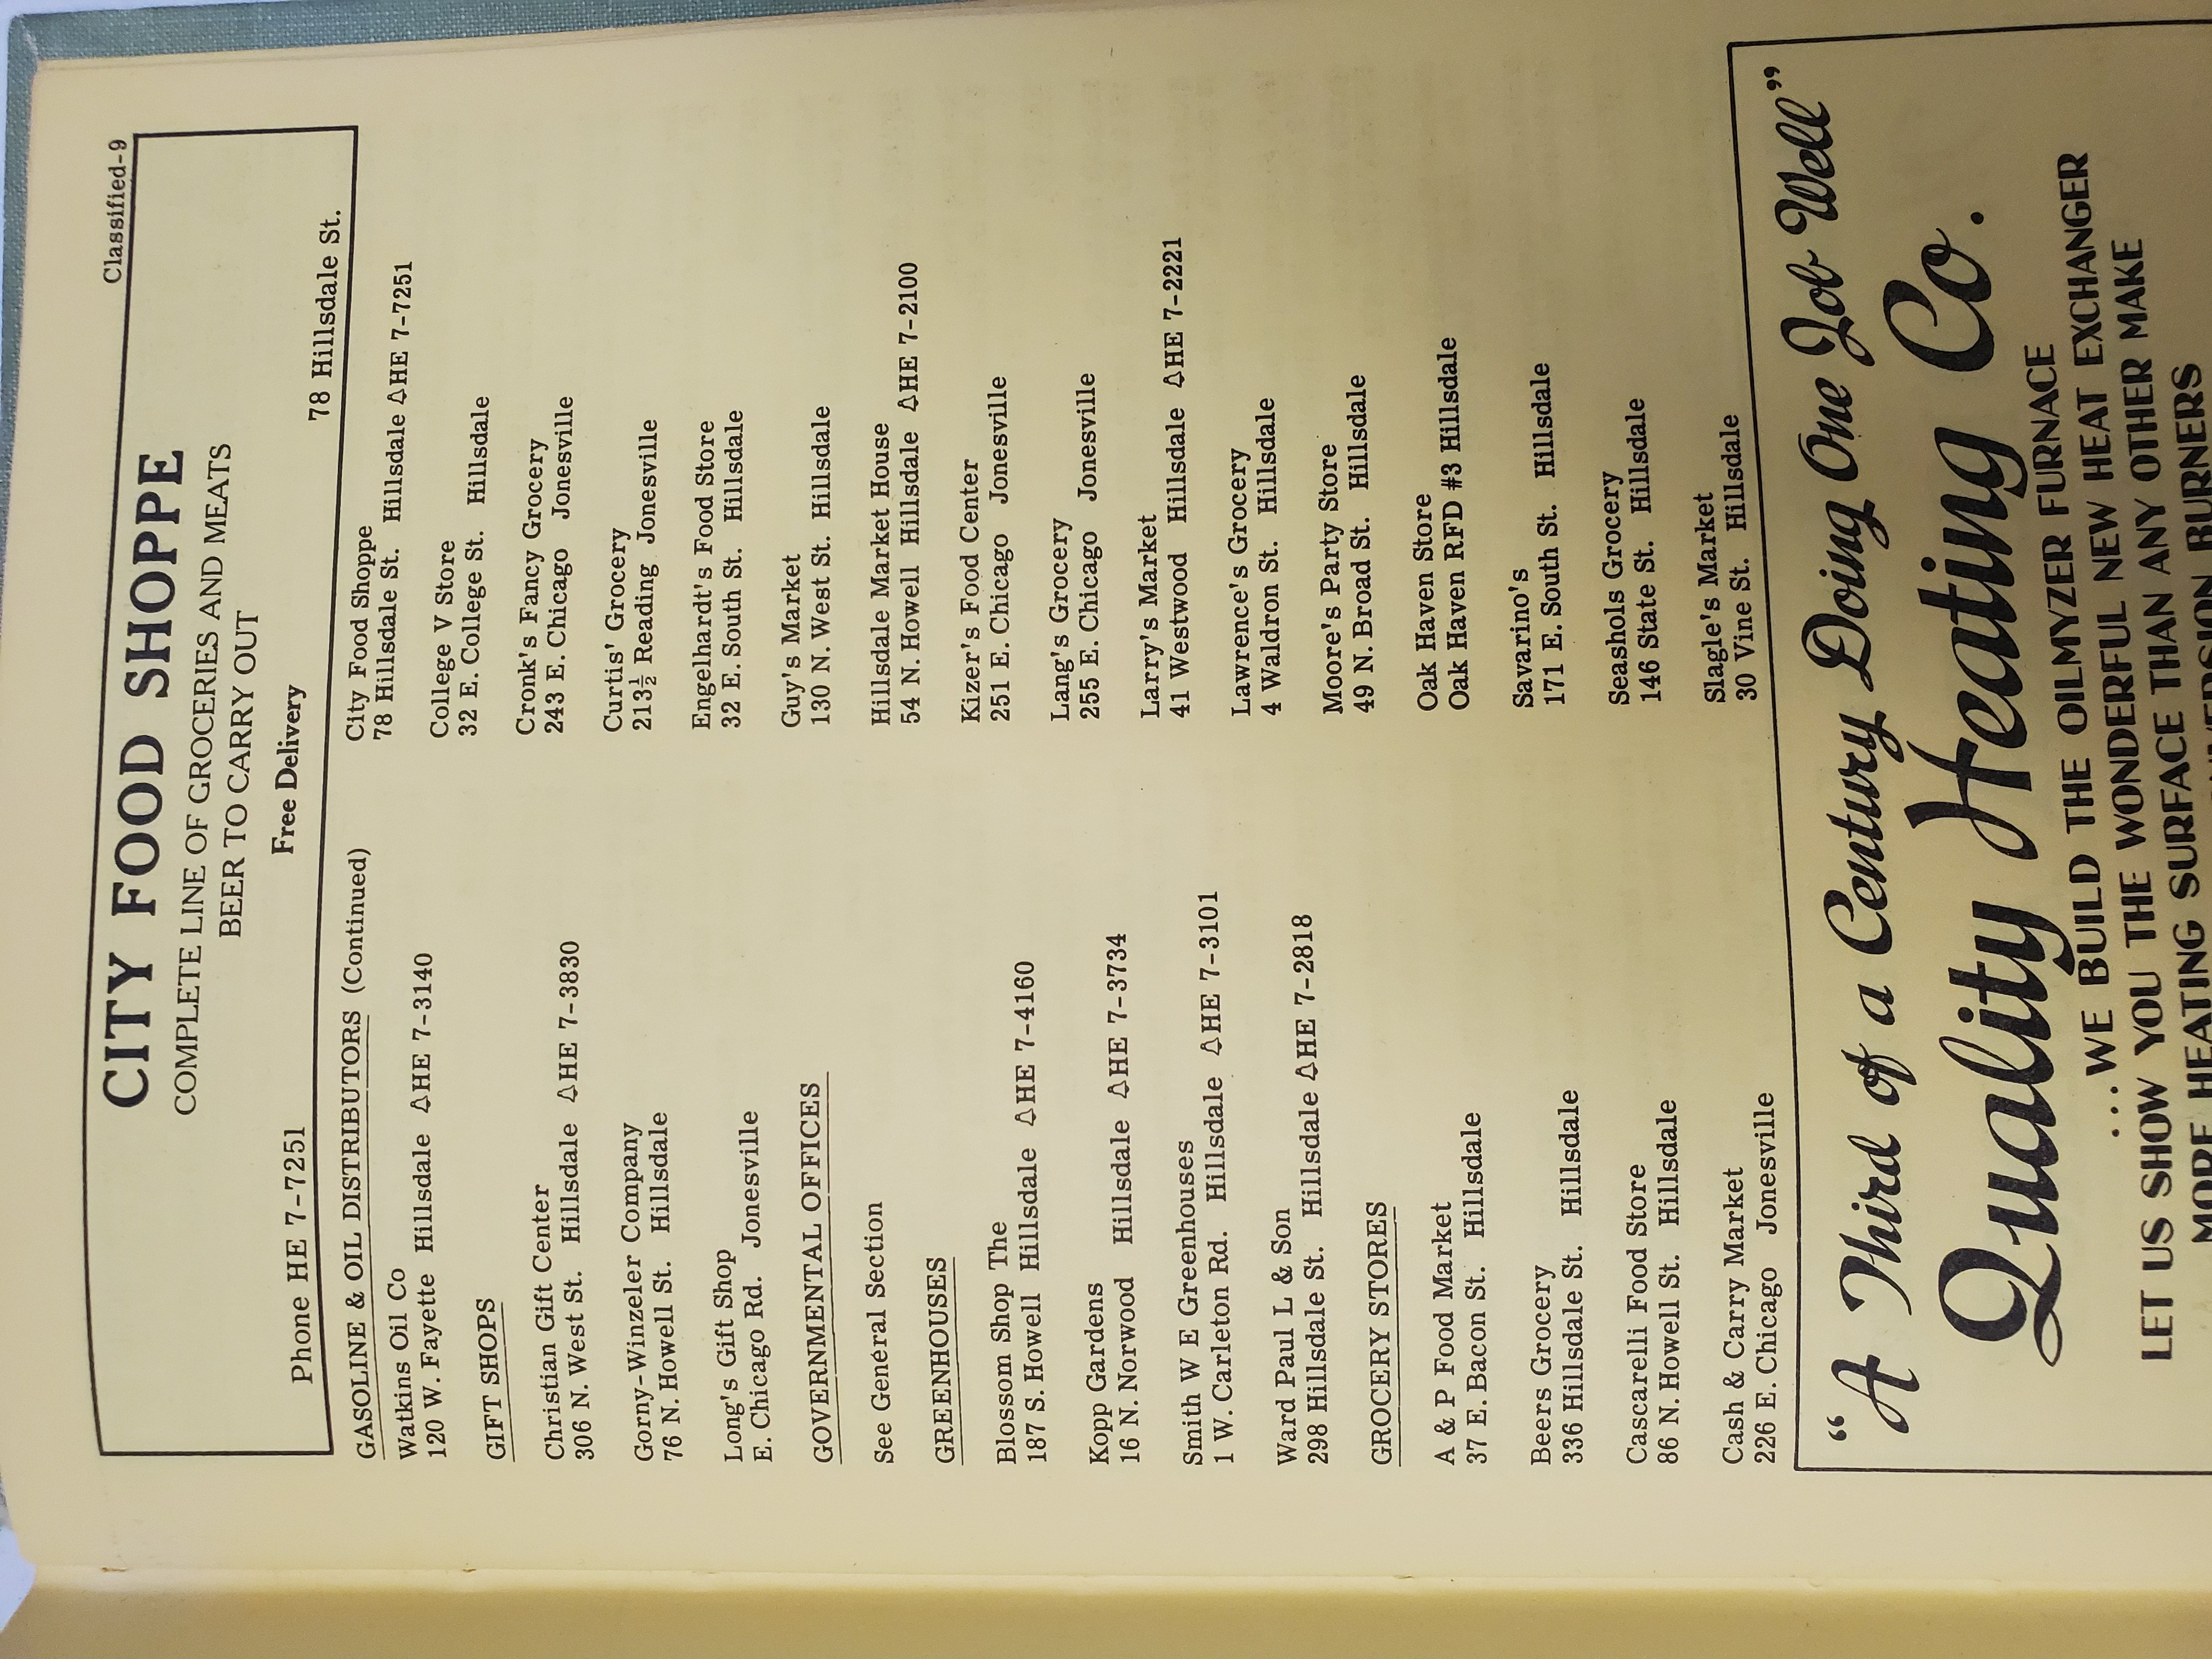 Classified-9
CITY FOOD SHOPPE
COMPLETE LINE OF GROCERIES AND MEATS
BEER TO CARRY OUT
Free Delivery
Phone HE 7-7251 78 Hillsdale St.
GASOLINE & OIL DISTRIBUTORS (Continued)
Watkins Oil Co
120 W. Fayette Hillsdale HE 7-3140
GIFT SHOPS
Christian Gift Center
306 N. West St. Hillsdale HE 7-3830
Gorny-Winzeler Company
76 N. Howell St. Hillsdale
Long's Gift Shop
E. Chicago Rd. Jonesville
GOVERNMENTAL OFFICES
See General Section
GREENHOUSES
Blossom Shop The
187 S. Howell Hillsdale HE 7-4160
Kopp Gardens
16 N. Norwood Hillsdale HE 7-3734
Smith W E Greenhouses
1 W. Carleton Rd. Hillsdale HE 7-3101
Ward Paul L & Son
298 Hillsdale St. Hillsdale HE 7-2818
GROCERY STORES
A & P Food Market
37 E. Bacon St. Hillsdale
Beers Grocery
336 Hillsdale St. Hillsdale
Cascarelli Food Store
86 N. Howell St. Hillsdale
Cash & Carry Market
226 E. Chicago Jonesville
City Food Shoppe
78 Hillsdale St. Hillsdale HE 7-7251
College V Store
32 E. College St. Hillsdale
Cronk's Fancy Grocery
243 E. Chicago Jonesville
Curtis' Grocery
213½ Reading Jonesville
Engelhardt's Food Store
32 E. South St. Hillsdale
Guy's Market
130 N. West St. Hillsdale
Hillsdale Market House
54 N. Howell Hillsdale HE 7-2100
Kizer's Food Center
251 E. Chicago Jonesville
Lang's Grocery
255 E. Chicago Jonesville
Larry's Market
41 Westwood Hillsdale HE 7-2221
Lawrence's Grocery
4 Waldron St. Hillsdale
Moore's Party Store
49 N. Broad St. Hillsdale
Oak Haven Store
Oak Haven RFD #3 Hillsdale
Savarino's
171 E. South St. Hillsdale
Seashols Grocery
146 State St. Hillsdale
Slagle's Market
30 Vine St. Hillsdale
“A Third of a Century Doing One Job Well”
Quality Heating Co.
...WE BUILD THE OILMYZER FURNACE
LET US SHOW YOU THE WONDERFUL NEW HEAT EXCHANGER
MORE HEATING SURFACE THAN ANY OTHER MAKE
BURNERS